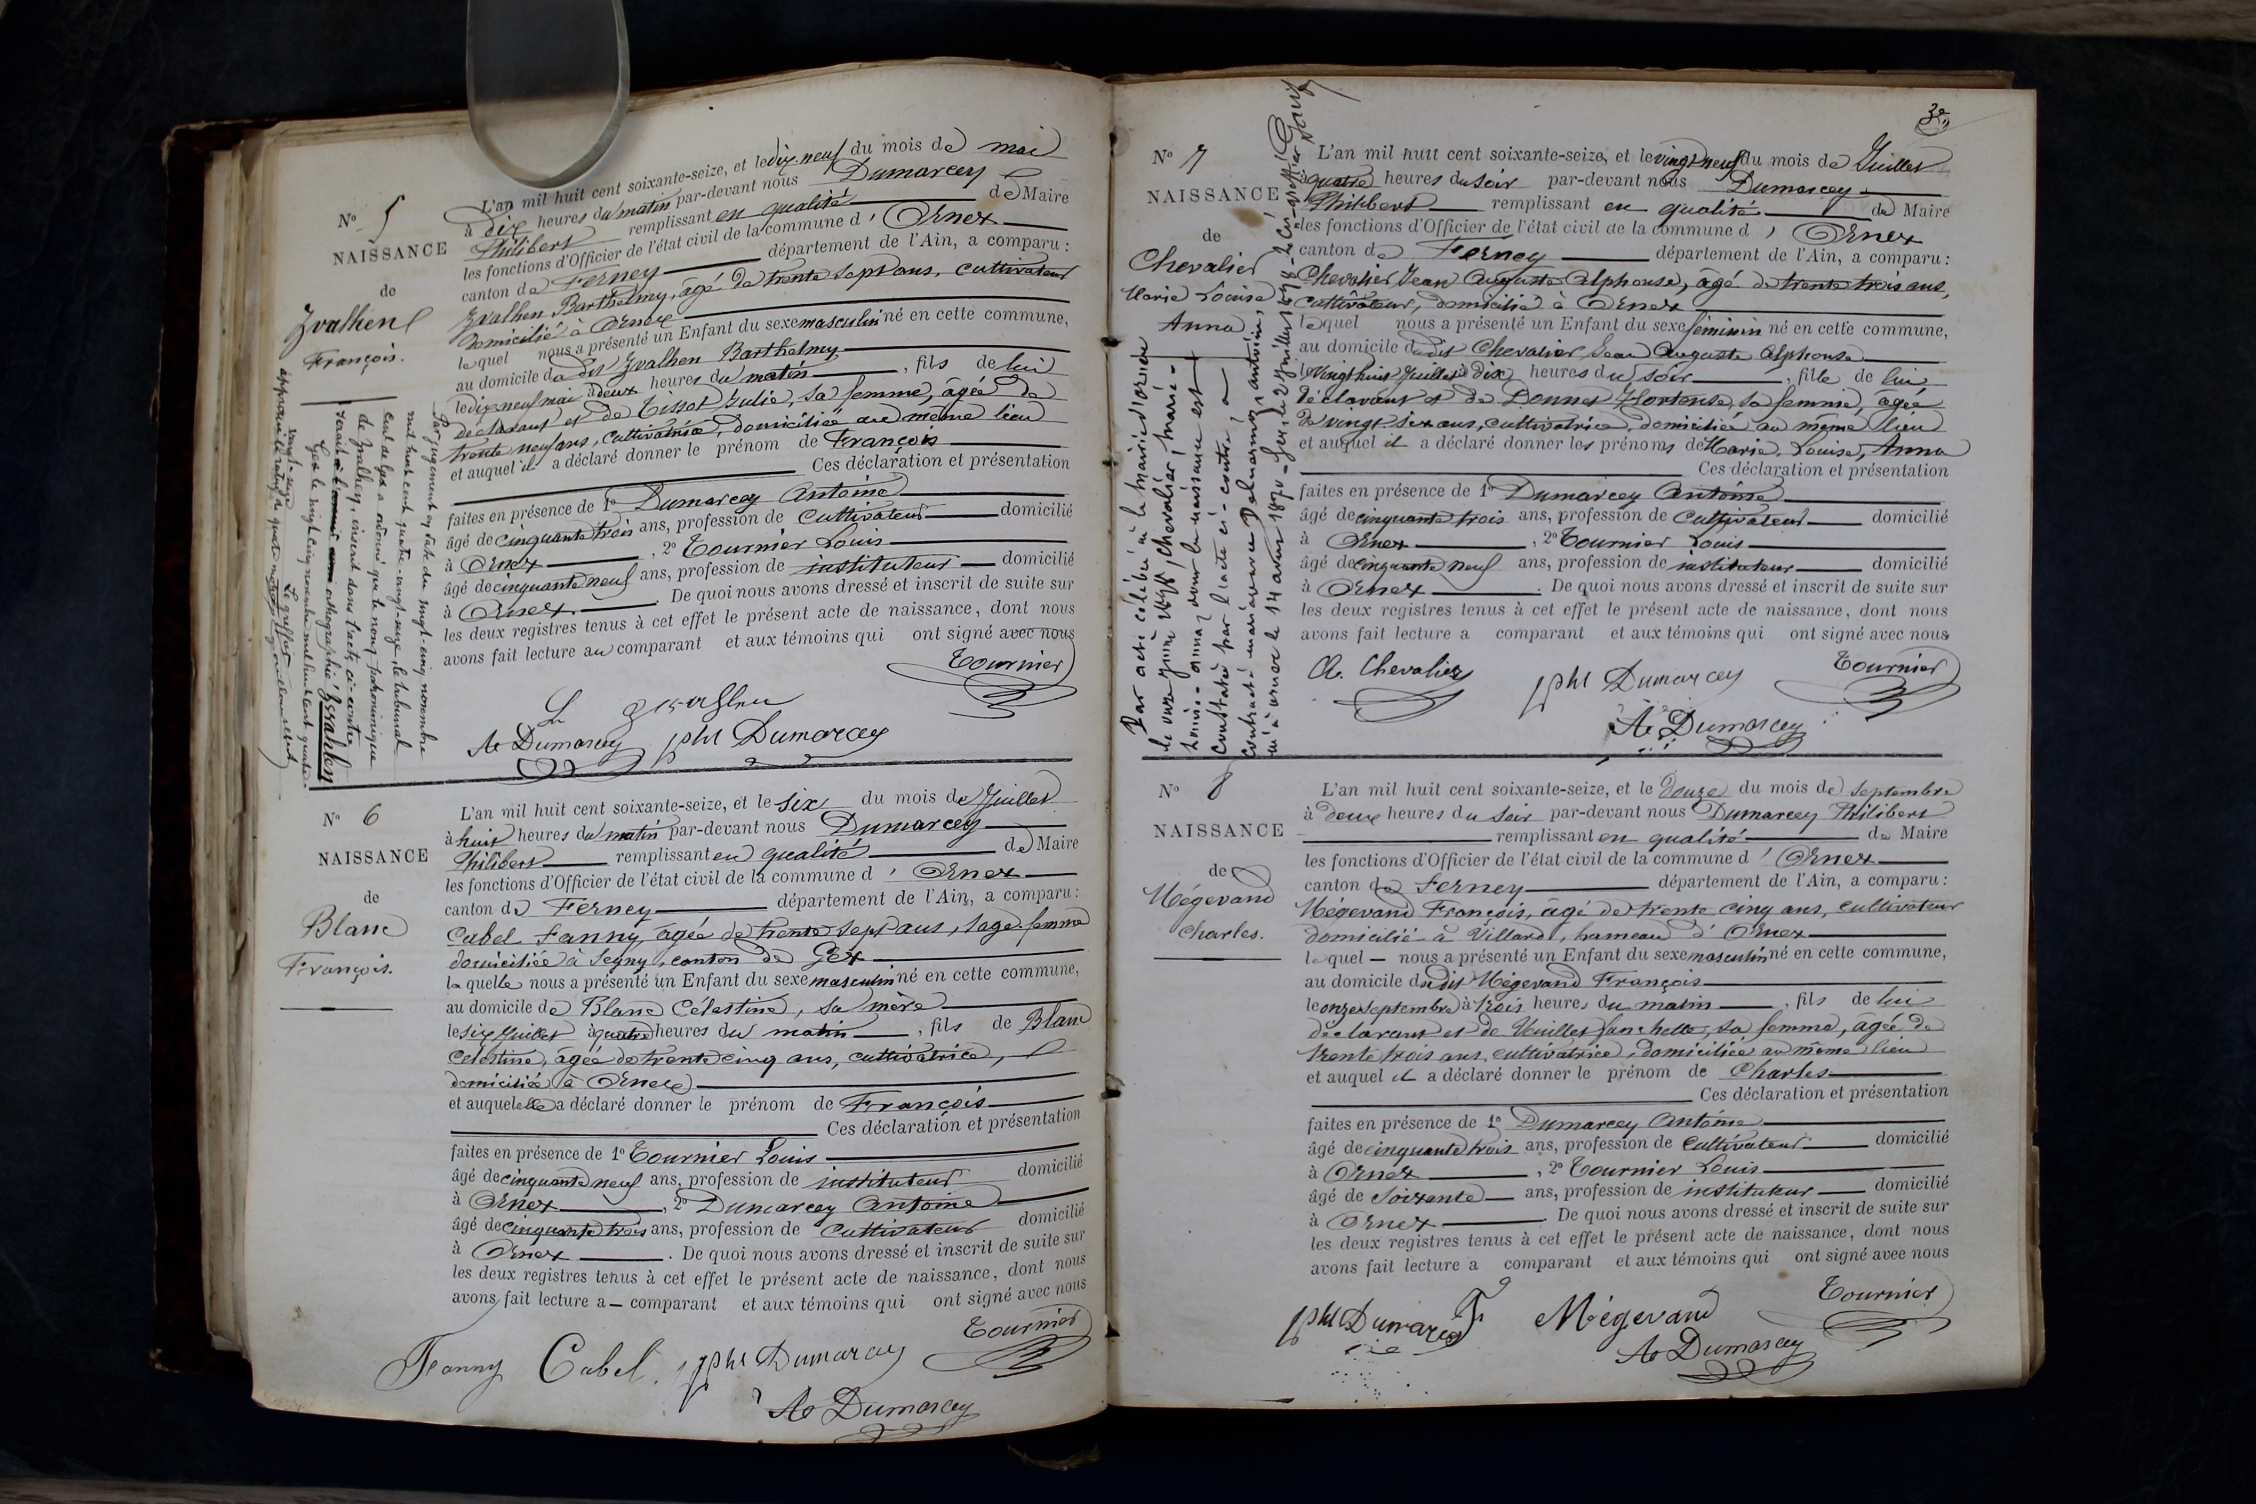 N° 5
NAISSANCE
de
Zvalhen
François.
L'an mil huit cent soixante-seize, et le dix neuf du mois de mai
à dix heures du matin par-devant nous Dumarcey
Philibert remplissant en qualité de Maire
les fonctions d'Officier de l'état civil de la commune d' Ornex
canton de Ferney département de l'Ain, a comparu :
Zvalhen Barthelmy, âgé de trente sept ans, cultivateur
domicilié à Ornex
lequel nous a présenté un Enfant du sexe masculin né en cette commune,
au domicile du dit Zvalhen Barthelmy
le dix neuf mai à deux heures du matin, fils de lui
déclarant et de Tissot Julie, sa femme, âgée de
trente neuf ans, cultivatrice, domiciliée au même lieu
et auquel il a déclaré donner le prénom de François
Ces déclaration et présentation
faites en présence de 1° Dumarcey Antoine
âgé de cinquante trois ans, profession de cultivateur domicilié
à Ornex, 2° Tournier Louis
âgé de cinquante neuf ans, profession de instituteur domicilié
à Ornex. De quoi nous avons dressé et inscrit de suite sur
les deux registres tenus à cet effet le présent acte de naissance, dont nous
avons fait lecture au comparant et aux témoins qui ont signé avec nous
Tournier
Ae Dumarcey pht Dumarcey
Par jugement en date du vingt-cinq novembre
mil huit cent quatre-vingt-seize, le tribunal
civil de Gex a ordonné que le nom patronimique
de Zvalhen, inscrit dans l'acte ci-contre
serait orthographié Zvrahlen
Gex le vingt cinq novembre mil huit cent quatre-
vingt-seize
Le greffier
N° 6
NAISSANCE
de
Blanc
François.
L'an mil huit cent soixante-seize, et le six du mois de Juillet
à huit heures du matin par-devant nous Dumarcey
Philibert remplissant en qualité de Maire
les fonctions d'Officier de l'état civil de la commune d' Ornex
canton de Ferney département de l'Ain, a comparu :
Cabel Fanny, âgée de trente sept ans, sage-femme
domiciliée à Segny, canton de Gex
laquelle nous a présenté un Enfant du sexe masculin né en cette commune,
au domicile de Blanc Célestine, sa mère
le six Juillet à quatre heures du matin, fils de Blanc
Célestine, âgée de trente cinq ans, cultivatrice,
domiciliée à Ornex
et auquel elle a déclaré donner le prénom de François
Ces déclaration et présentation
faites en présence de 1° Tournier Louis
âgé de cinquante neuf ans, profession de instituteur domicilié
à Ornex, 2° Dumarcey Antoine
âgé de cinquante trois ans, profession de cultivateur domicilié
à Ornex. De quoi nous avons dressé et inscrit de suite sur
les deux registres tenus à cet effet le présent acte de naissance, dont nous
avons fait lecture a comparant et aux témoins qui ont signé avec nous
Tournier
Fanny Cabel. pht Dumarcey
Ae Dumarcey
N° 7
NAISSANCE
de
Chevalier
Marie Louise
Anna
L'an mil huit cent soixante-seize, et le vingt neuf du mois de Juillet
à quatre heures du soir par-devant nous Dumarcey
Philibert remplissant en qualité de Maire
les fonctions d'Officier de l'état civil de la commune d' Ornex
canton de Ferney département de l'Ain, a comparu :
Chevalier Jean Auguste Alphonse, âgé de trente trois ans,
cultivateur, domicilié à Ornex
lequel nous a présenté un Enfant du sexe féminin né en cette commune,
au domicile du dit Chevalier Jean Auguste Alphonse
le vingt huit Juillet à dix heures du soir, fille de lui
déclarant et de Donnet Hortense, sa femme, âgée
de vingt six ans, cultivatrice, domiciliée au même lieu
et auquel il a déclaré donner les prénoms de Marie, Louise, Anna
Ces déclaration et présentation
faites en présence de 1° Dumarcey Antoine
âgé de cinquante trois ans, profession de cultivateur domicilié
à Ornex, 2° Tournier Louis
âgé de cinquante neuf ans, profession de instituteur domicilié
à Ornex. De quoi nous avons dressé et inscrit de suite sur
les deux registres tenus à cet effet le présent acte de naissance, dont nous
avons fait lecture a comparant et aux témoins qui ont signé avec nous
A. Chevalier pht Dumarcey Tournier
Ae Dumarcey
Par acte célébré à la mairie d'ornex
le onze juin chevalier, marie-
louise-anna, dont la naissance est
constatée par l'acte ci-contre, a
contracté mariage avec antoine,
né à ornex le 14 avril 1870
N° 8
NAISSANCE
de
Mégevand
Charles.
L'an mil huit cent soixante-seize, et le douze du mois de septembre
à deux heures du soir par-devant nous Dumarcey Philibert
remplissant en qualité de Maire
les fonctions d'Officier de l'état civil de la commune d' Ornex
canton de Ferney département de l'Ain, a comparu :
Mégevand François, âgé de trente cinq ans, cultivateur
domicilié à Villard, hameau d'Ornex
lequel nous a présenté un Enfant du sexe masculin né en cette commune,
au domicile du dit Mégevand François
le onze septembre à trois heures du matin, fils de lui
déclarant et de Vuillet Fanchette, sa femme, âgée de
trente trois ans, cultivatrice, domiciliée au même lieu
et auquel il a déclaré donner le prénom de Charles
Ces déclaration et présentation
faites en présence de 1° Dumarcey Antoine
âgé de cinquante trois ans, profession de cultivateur domicilié
à Ornex, 2° Tournier Louis
âgé de soixante ans, profession de instituteur domicilié
à Ornex. De quoi nous avons dressé et inscrit de suite sur
les deux registres tenus à cet effet le présent acte de naissance, dont nous
avons fait lecture a comparant et aux témoins qui ont signé avec nous
pht Dumarcey F. Mégevand Tournier
Ae Dumarcey